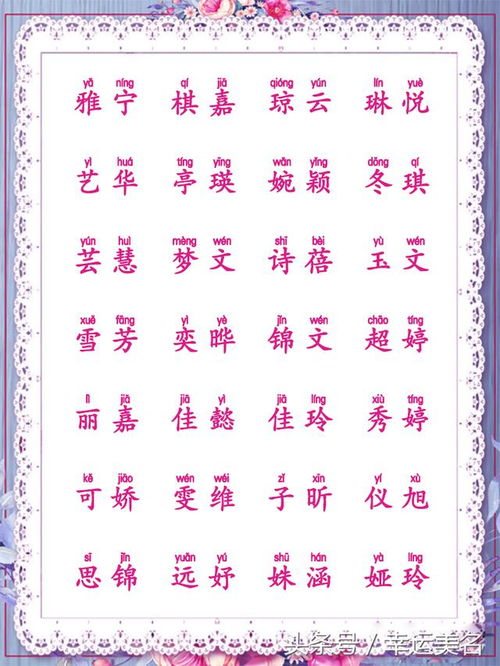 yǎ níng qí jiā qióng yún lín yuè
雅宁 棋嘉 琼云 琳悦
yì huá tíng yīng wǎn yǐng dōng qí
艺华 亭瑛 婉颖 冬琪
yún huì mèng wén shī bèi yù wén
芸慧 梦文 诗蓓 玉文
xuě fāng yì yè jǐn wén chāo tíng
雪芳 奕晔 锦文 超婷
lì jiā jiā yì jiā líng xiù tíng
丽嘉 佳懿 佳玲 秀婷
kě jiāo wén wéi zǐ xīn yí xù
可娇 雯维 子昕 仪旭
sī jǐn yuǎn yú shū hán yà líng
思锦 远妤 姝涵 娅玲
头条号 / 幸运美名